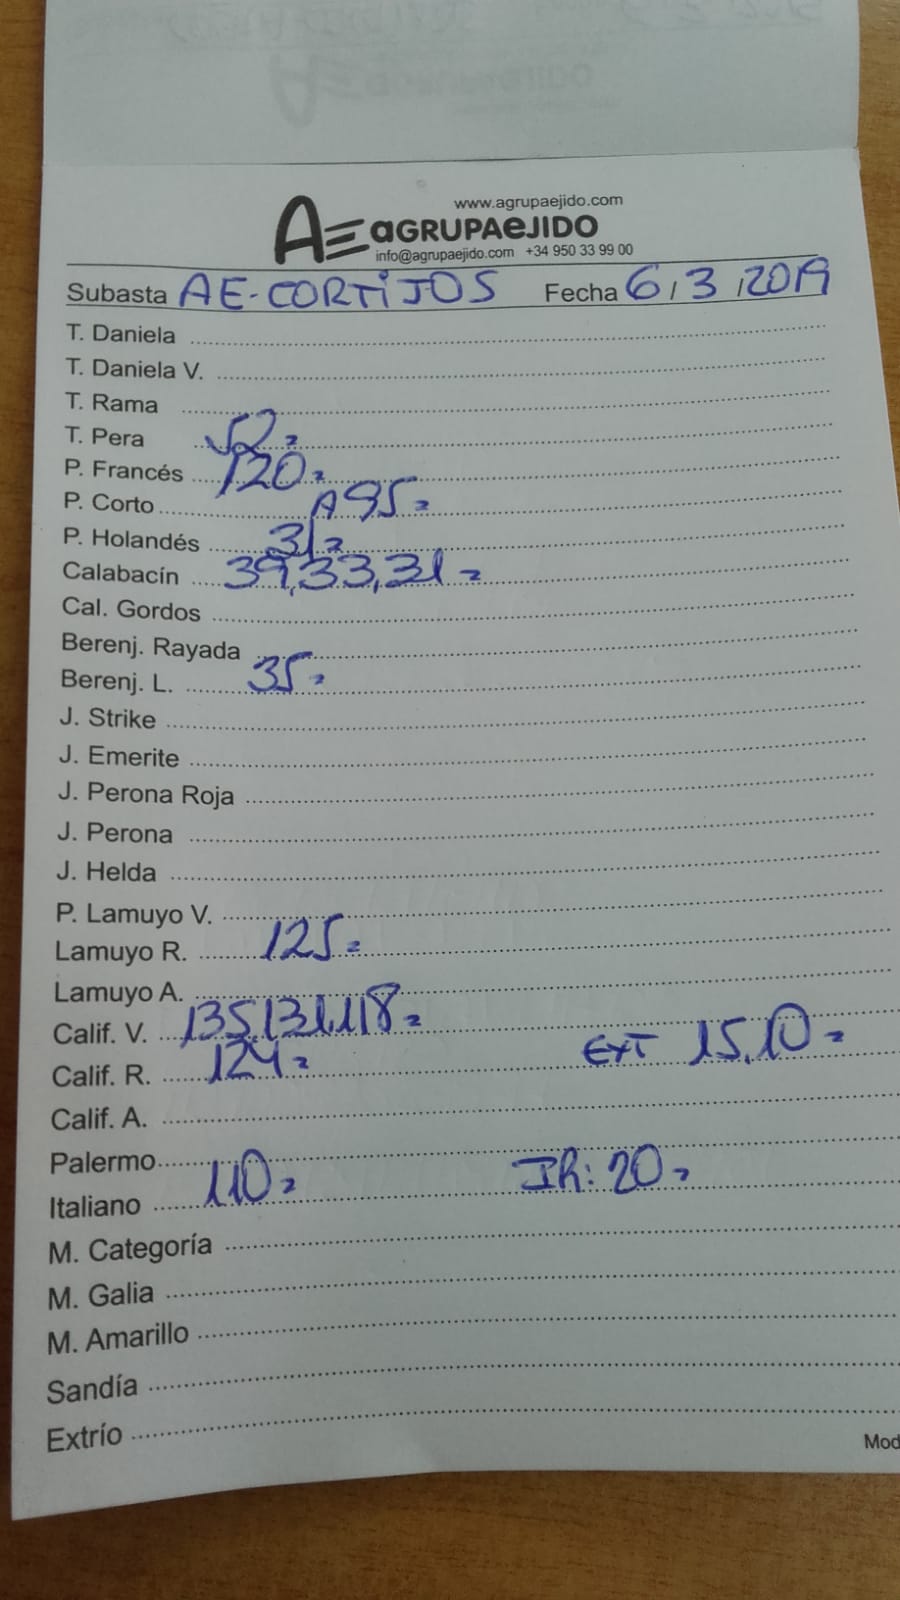 www.agrupaejido.com
AE aGRUPAeJIDO
info@agrupaejido.com +34 950 33 99 00
Subasta AE-CORTIJOS Fecha 6/3/2019
T. Daniela
T. Daniela V.
T. Rama
T. Pera 52=
P. Francés 120=
P. Corto A 95=
P. Holandés 31=
Calabacín 39,33,31=
Cal. Gordos
Berenj. Rayada
Berenj. L. 35=
J. Strike
J. Emerite
J. Perona Roja
J. Perona
J. Helda
P. Lamuyo V.
Lamuyo R. 125=
Lamuyo A.
Calif. V. 135,131,118=
Calif. R. 124= EXT 15,10=
Calif. A.
Palermo
Italiano 110= IR: 20=
M. Categoría
M. Galia
M. Amarillo
Sandía
Extrío
Mod